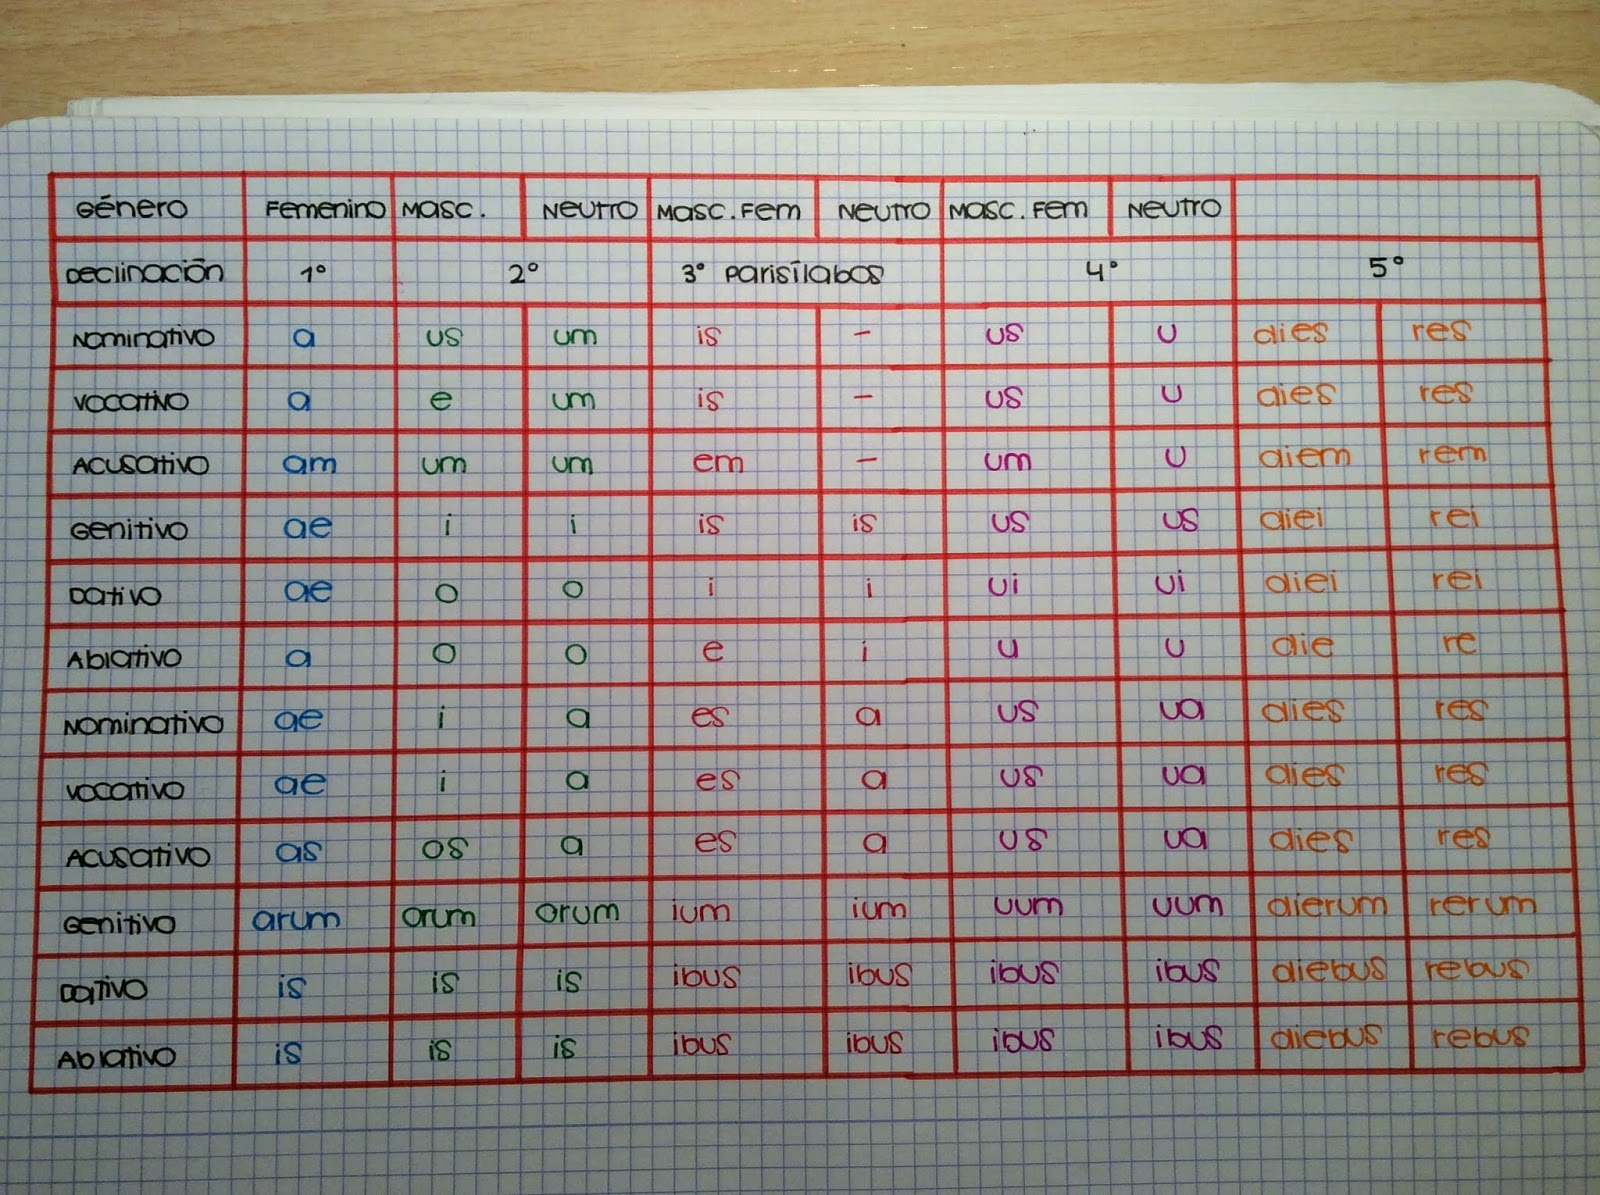 Género Femenino Masc. Neutro Masc. Fem Neutro Masc. Fem Neutro
Declinación 1º 2º 3º Parisílabos 4º 5º
Nominativo a us um is – us u dies res
Vocativo a e um is – us u dies res
Acusativo am um um em – um u diem rem
Genitivo ae i i is is us us diei rei
Dativo ae o o i i ui ui diei rei
Ablativo a o o e i u u die re
Nominativo ae i a es a us ua dies res
Vocativo ae i a es a us ua dies res
Acusativo as os a es a us ua dies res
Genitivo arum orum orum ium ium uum uum dierum rerum
Dativo is is is ibus ibus ibus ibus diebus rebus
Ablativo is is is ibus ibus ibus ibus diebus rebus